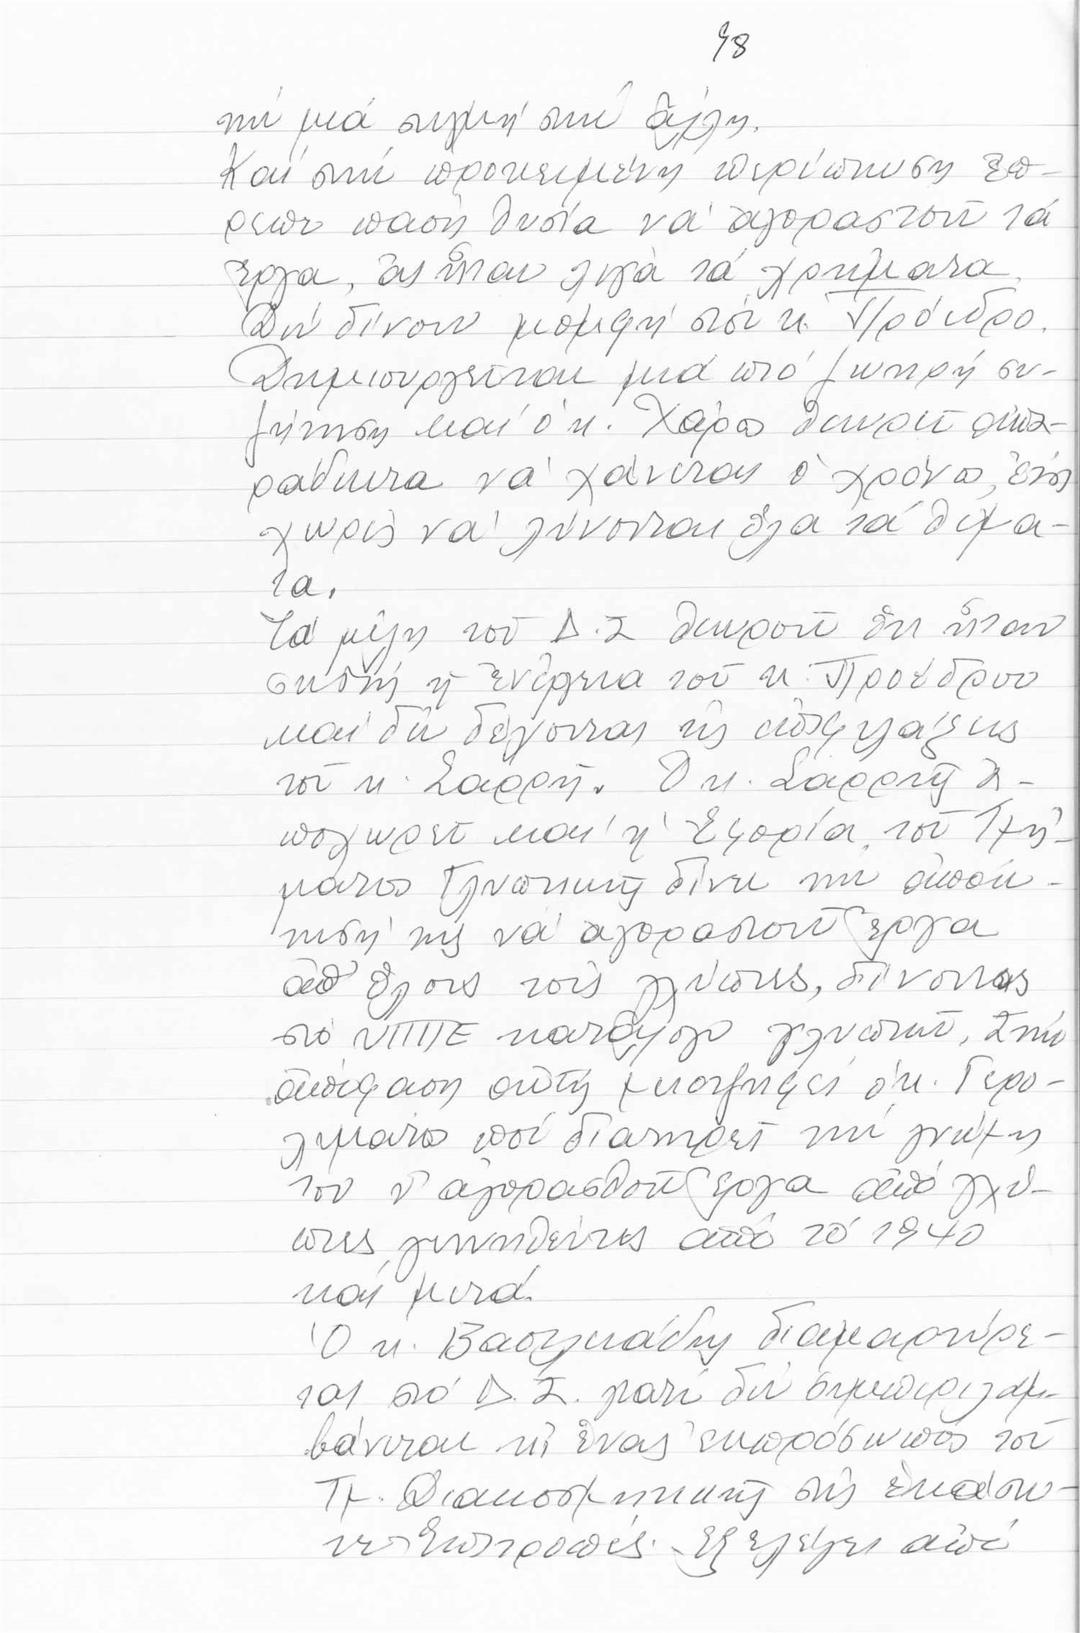 98
τή μιά στιγμή στήν ἄλλη.
Καί στήν προκειμένη περίπτωση ἔπ-
ρεπε πάση θυσία νά ἀγοραστοῦν τά
ἔργα, ἄς ἦταν λίγα τά χρήματα.
Δέν δίνουν μομφή στόν κ. Πρόεδρο.
Δημιουργεῖται μιά πιό ζωηρή συ-
ζήτηση καί ὁ κ. Χάρος θεωρεῖ ἀπα-
ράδεκτα νά χάνεται ὁ χρόνος, ἔτσι
χωρίς νά λύνονται ὅλα τά θέμα-
τα.
Τά μέλη τοῦ Δ.Σ θεωροῦν ὅτι ἦταν
σωστή ἡ ἐνέργεια τοῦ κ. Προέδρου
καί δέν δέχονται τίς ἐπιφυλάξεις
τοῦ κ. Σαρρῆ. Ὁ κ. Σαρρῆς ἀ-
ποχωρεῖ καί ἡ Ἐφορία τοῦ Τμή-
ματος Γλυπτικῆς δίνει τήν ἀπάν-
τησή της νά ἀγοραστοῦν ἔργα
ἀπ' ὅλους τούς γλύπτες, δίνοντας
στό ΥΠΠΕ κατάλογο γλυπτῶν. Στήν
ἀπόφαση αὐτή μειοψηφεῖ ὁ κ. Γερο-
λυμάτος πού διατηρεῖ τήν γνώμη
του ν' ἀγορασθοῦν ἔργα ἀπό γλύ-
πτες γεννηθέντες ἀπό τό 1940
καί μετά.
Ὁ κ. Βασιλειάδης διαμαρτύρε-
ται στό Δ.Σ. γιατί δέν συμπεριλαμ-
βάνεται κι ἕνας ἐκπρόσωπος τοῦ
Τμ. Διακοσμητικῆς στίς ἑκάστο-
τε Ἐπιτροπές. Ἐξελέγει ἀπό